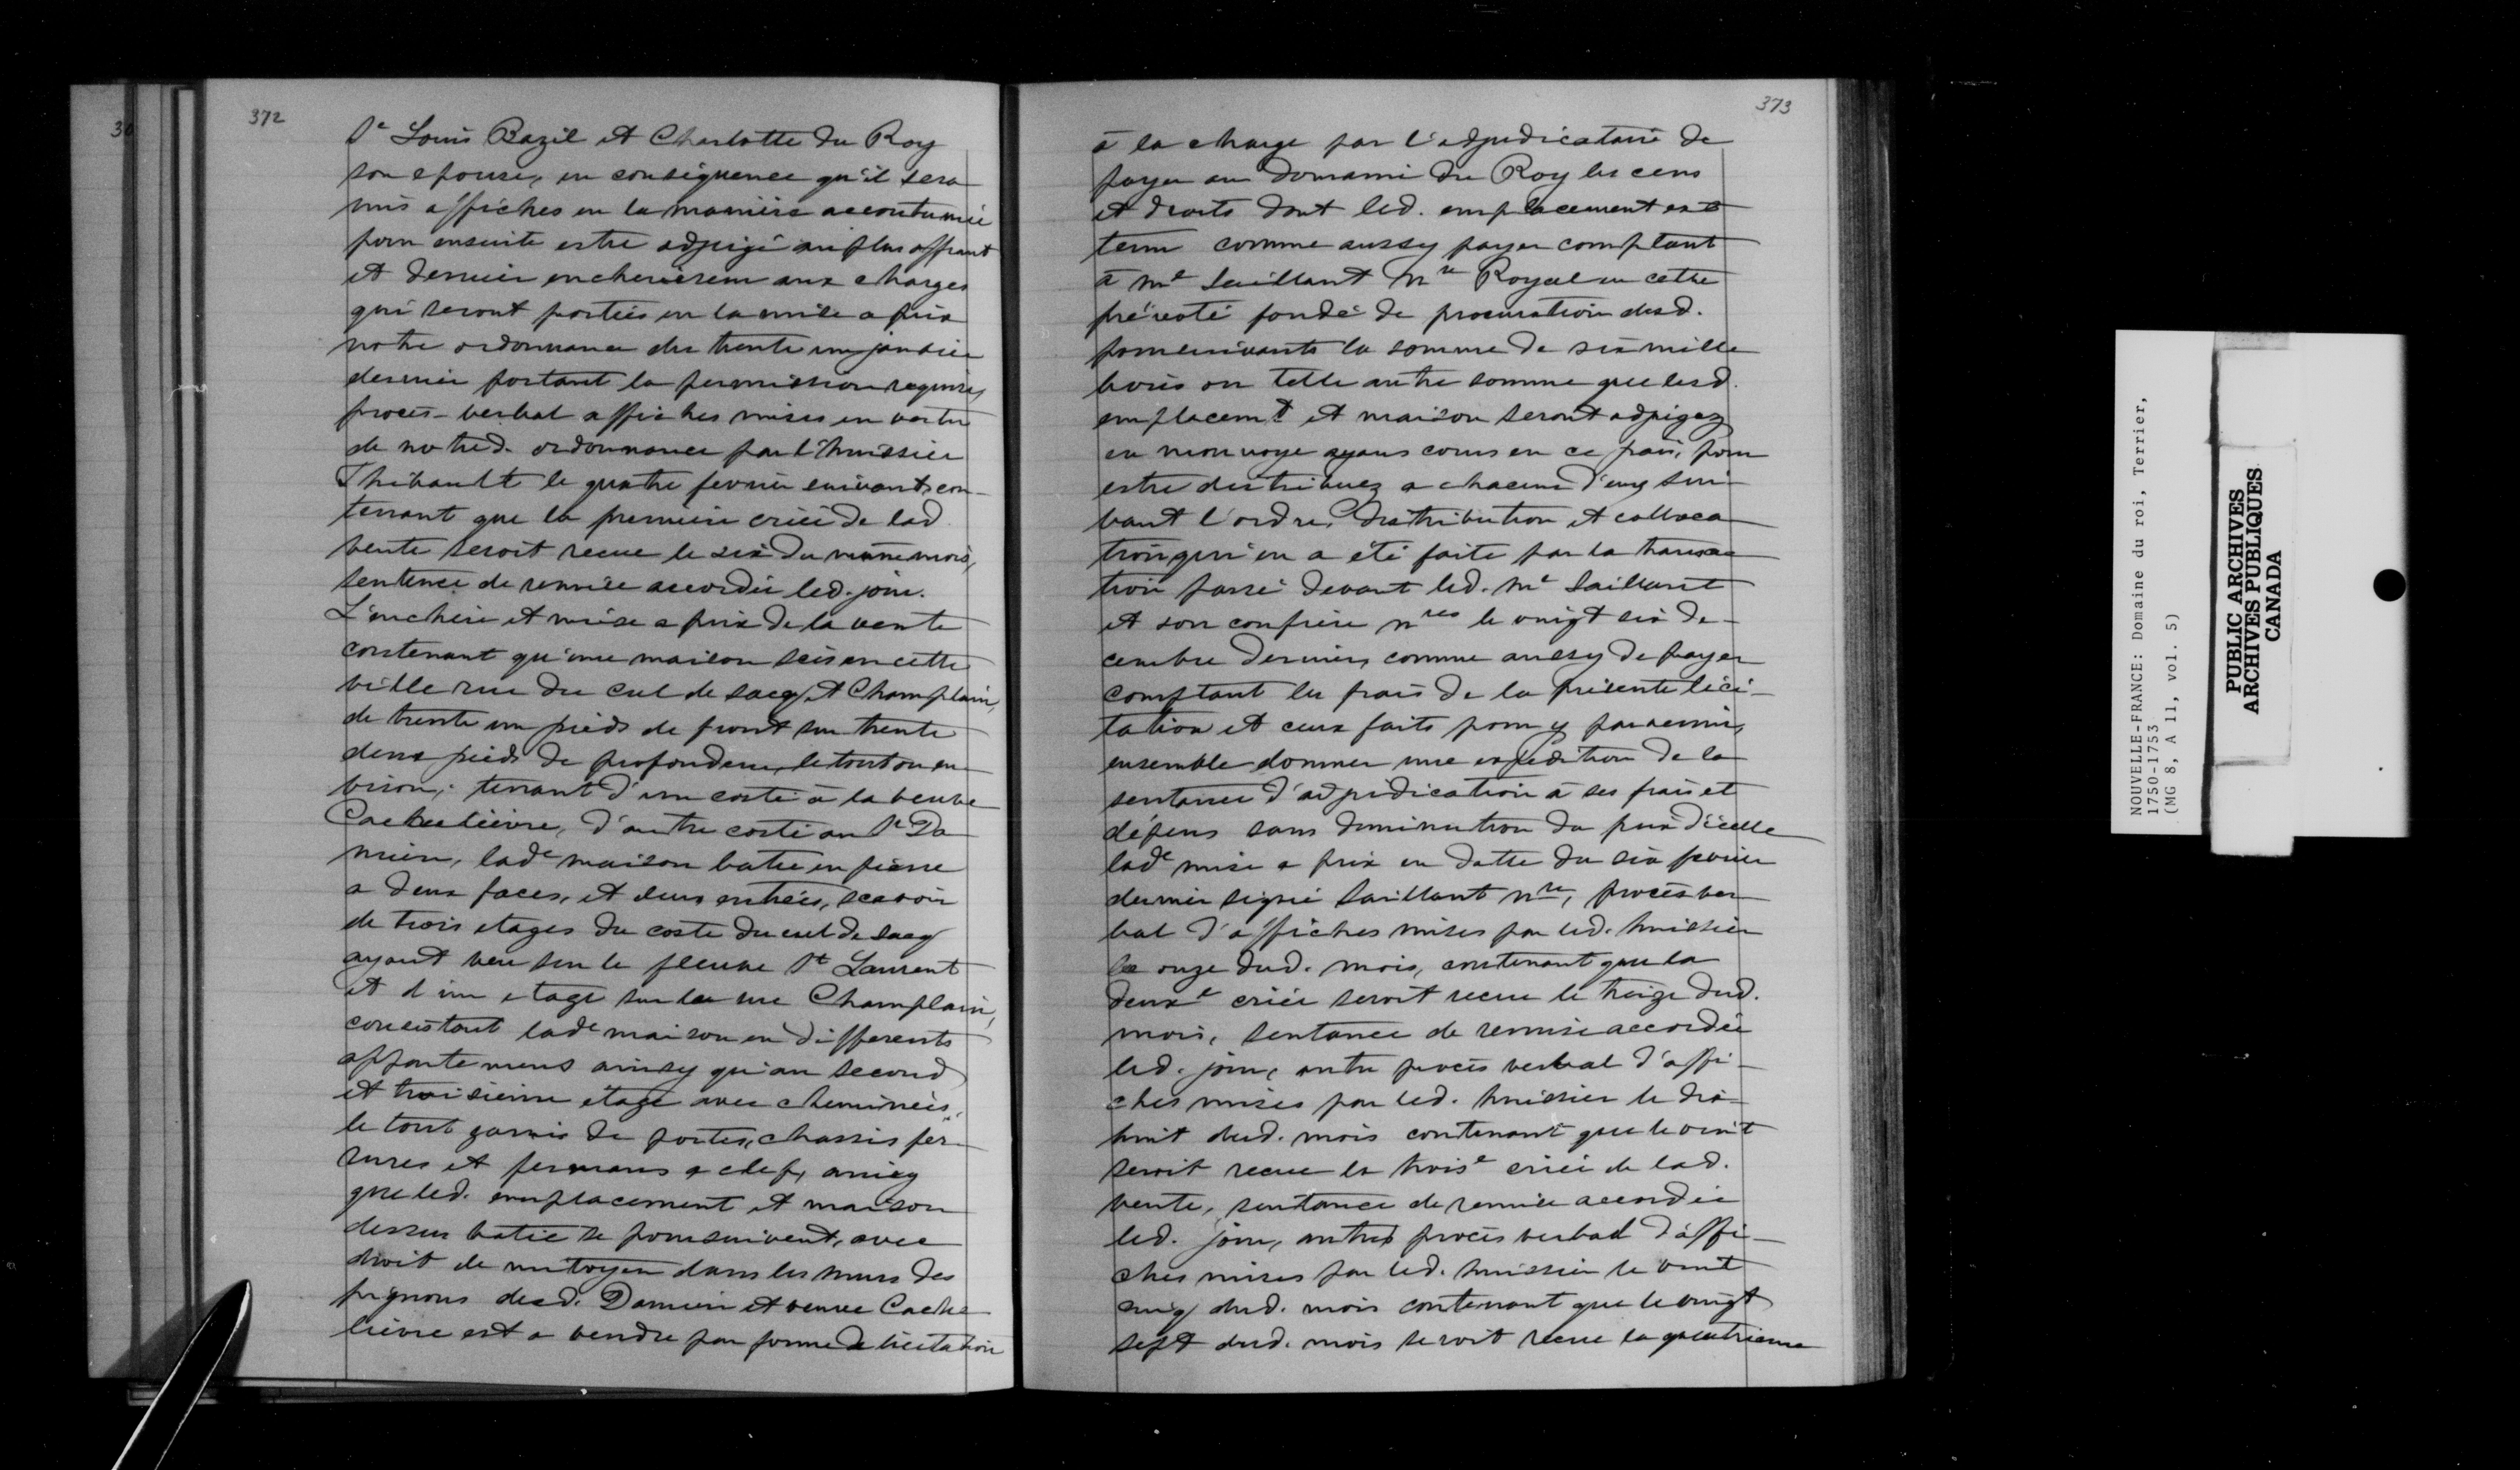 372
Sr Louis Bazil et Charlotte du Roy
son epouse, en conséquence qu'il sera
mis affiches en la manière accoutumée
pour ensuite estre adjugé au plus offrant
et dernier encherisseur aux charges
qui seront portées en la mise a prix
notre ordonnance du trente un janvier
dernier portant la permission requise,
procès-verbal affiches mises en vertu
de notred. ordonnance par l'huissier
Thibault le quatre fevrier suivant, con-
tenant que la première criée de lad.
vente seroit recue le six du même mois,
sentence de remise accordée led. jour.
L'enchère et mise a prix de la vente
contenant qu'une maison scis en cette
ville rue du cul de sacq et Champlain,
de trente un pieds de front sur trente
deux pieds de profondeur, le tout ou en-
viron; tenant d'un costé à la veuve
Cachelièvre, d'autre costé au Sr Da-
mien, lade maison batie en pierre
a deux faces, et deux entrées, scavoir
de trois etages du coste du cul de sacq
ayant veu sur le fleuve St Laurent
et d'un etage sur la rue Champlain,
consistant lade maison en differents
appartemens ainsy qu'au second
et troisième étage avec cheminées,
le tout garnis de portes, chassis fer-
rures et fermans a clef, ainsy
que led. emplacement et maison
dessus batie se poursuivent, avec
droit de mitoyen dans les murs des
pignons desd. Damien et veuve Cache-
lièvre est a vendre par forme de licitation
373
à la charge par l'adjudicataire de
payer au Domaine du Roy les cens
et droits dont led. emplacement est
tenu comme aussy payer comptant
à Me Saillant Nre Royal en cette
prévoté fondé de procuration desd.
poursuivants la somme de six mille
livres ou telle autre somme que lesd.
emplacemt et maison seront adjugez
en monnoye ayans cours en ce païs, pour
estre distribuez a chacun d'eux sui-
vant l'ordre, distribution et colloca-
tion qui en a été faite par la transac-
tion passé devant led. Me Saillant
et son confrère nres le vingt six de-
cembre dernier, comme aussy de payer
comptant les frais de la présente lici-
tation et ceux faits pour y parvenir,
ensemble donner une expedition de la
sentance d'adjudication à ses frais et
dépens sans diminution du prix d'icelle
lade mise a prix en datte du six fevrier
dernier signé Saillant nre, procès ver-
bal d'affiches mises par led. huissier
le onze dud. mois, contenant que la
deuxe criée seroit recue le treize dud.
mois, sentance de remise accordée
led. jour, autre procès verbal d'affi-
ches mises par led. huissier le dix-
huit dud. mois contenant que le vint
seroit recue la troise criée de lad.
vente, sentance de remise accordée
led. jour, autre procès verbal d'affi-
ches mises par led. huissier le vint
cinq dud. mois contenant que le vingt
sept dud. mois seroit recue la quatrieme
NOUVELLE-FRANCE: Domaine du roi, Terrier,
1750-1753
(MG 8, A 11, vol. 5)
PUBLIC ARCHIVES
ARCHIVES PUBLIQUES
CANADA